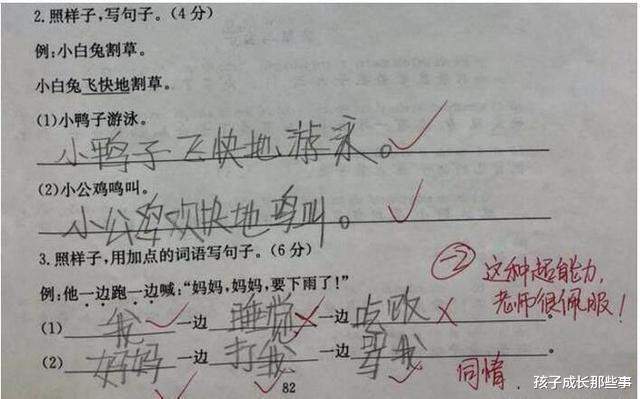 2.照样子,写句子。(4分)
例:小白兔割草。
小白兔飞快地割草。
(1)小鸭子游泳。
小鸭子飞快地游泳。
(2)小公鸡鸣叫。
小公鸡欢快地鸣叫。
3.照样子,用加点的词语写句子。(6分)
例:他一边跑一边喊:“妈妈,妈妈,要下雨了!”
(1) 我 一边 睡觉 一边 吃饭 。
(2) 妈妈 一边 打我 一边 骂我 。
82
-2 这种超能力,
老师很佩服!
同情.
孩子成长那些事